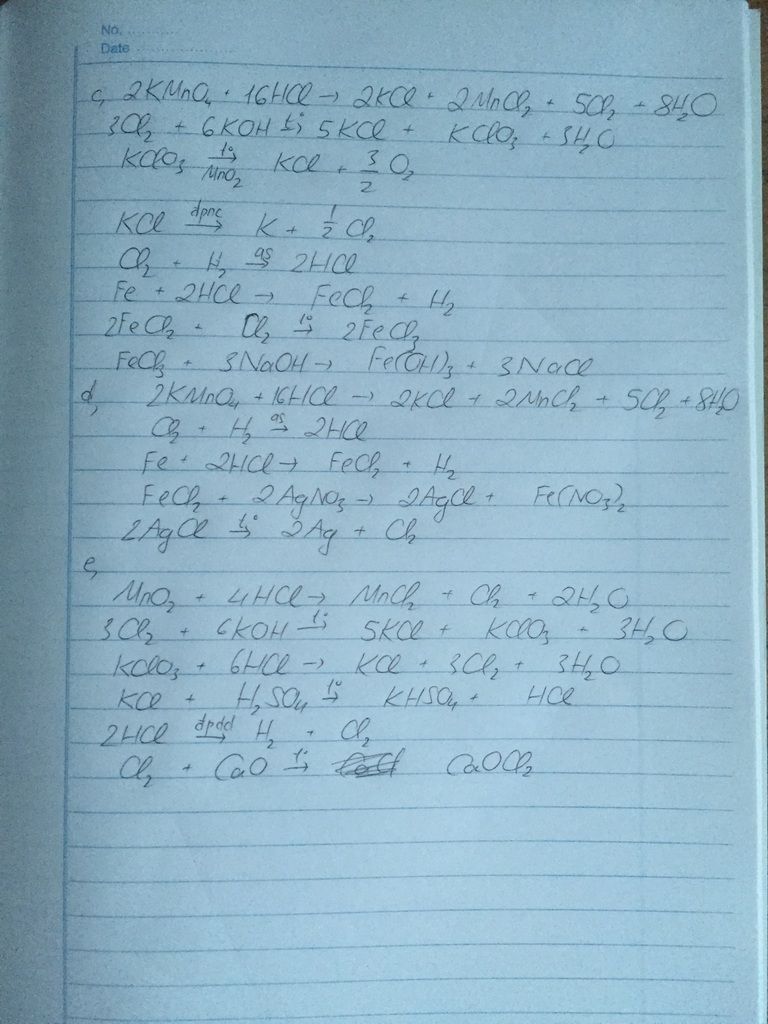 No. ............
Date ......................
c, 2KMnO₄ + 16HCl → 2KCl + 2MnCl₂ + 5Cl₂ + 8H₂O
3Cl₂ + 6KOH t°→ 5KCl + KClO₃ + 3H₂O
KClO₃ t°→ MnO₂ KCl + 3/2 O₂
KCl đpnc→ K + 1/2 Cl₂
Cl₂ + H₂ as→ 2HCl
Fe + 2HCl → FeCl₂ + H₂
2FeCl₂ + Cl₂ t°→ 2FeCl₃
FeCl₃ + 3NaOH → Fe(OH)₃ + 3NaCl
d, 2KMnO₄ + 16HCl → 2KCl + 2MnCl₂ + 5Cl₂ + 8H₂O
Cl₂ + H₂ as→ 2HCl
Fe + 2HCl → FeCl₂ + H₂
FeCl₂ + 2AgNO₃ → 2AgCl + Fe(NO₃)₂
2AgCl t°→ 2Ag + Cl₂
e,
MnO₂ + 4HCl → MnCl₂ + Cl₂ + 2H₂O
3Cl₂ + 6KOH t°→ 5KCl + KClO₃ + 3H₂O
KClO₃ + 6HCl → KCl + 3Cl₂ + 3H₂O
KCl + H₂SO₄ t°→ KHSO₄ + HCl
2HCl đpdd→ H₂ + Cl₂
Cl₂ + CaO t°→ CaOCl₂